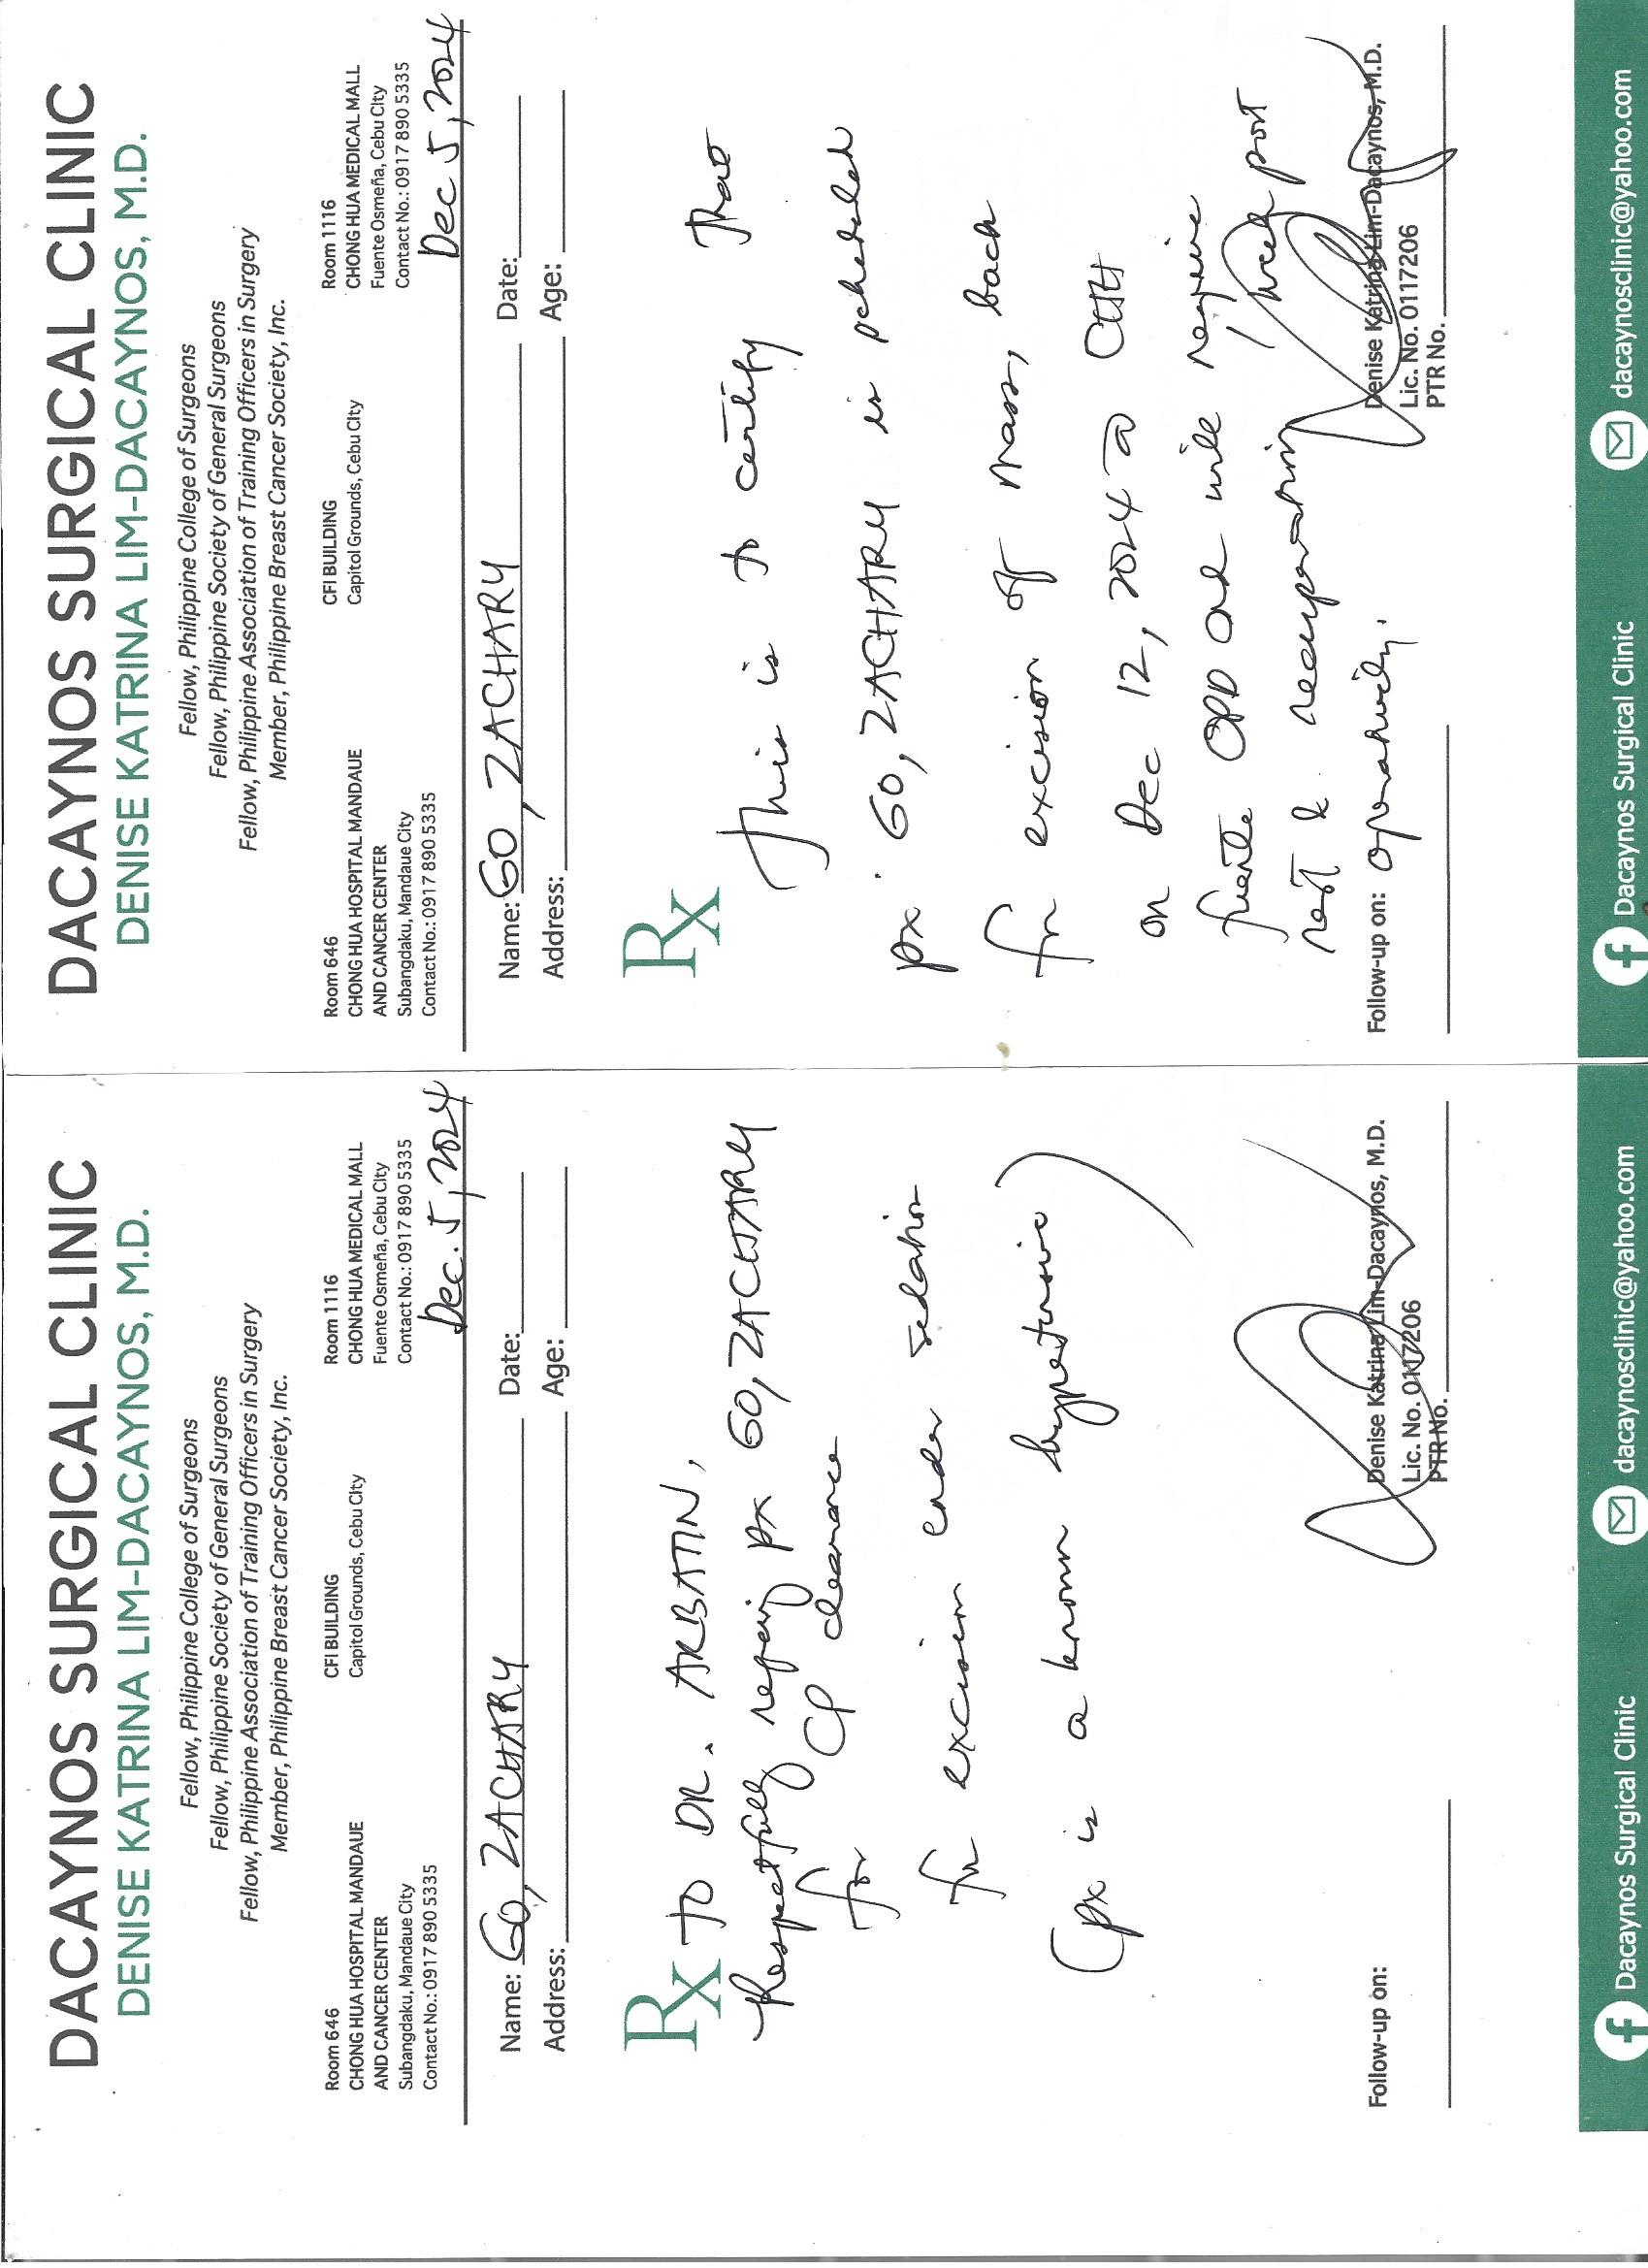 DACAYNOS SURGICAL CLINIC
DENISE KATRINA LIM-DACAYNOS, M.D.
Fellow, Philippine College of Surgeons
Fellow, Philippine Society of General Surgeons
Fellow, Philippine Association of Training Officers in Surgery
Member, Philippine Breast Cancer Society, Inc.
Room 646
CHONG HUA HOSPITAL MANDAUE
AND CANCER CENTER
Subangdaku, Mandaue City
Contact No.: 0917 890 5335
CFI BUILDING
Capitol Grounds, Cebu CIty
Room 1116
CHONG HUA MEDICAL MALL
Fuente Osmeña, Cebu CIty
Contact No.: 0917 890 5335
Dec. 5, 2024
Name: GO, ZACHARY Date:
Address: Age:
Rx TO DR. ARBATIN,
Respectfully refering px GO, ZACHARY
for CP clearance
for excision under sedation
(px is a known hypertensive)
Follow-up on:
Denise Katrina Lim-Dacaynos, M.D.
Lic. No. 0117206
PTR No.
Dacaynos Surgical Clinic dacaynosclinic@yahoo.com
DACAYNOS SURGICAL CLINIC
DENISE KATRINA LIM-DACAYNOS, M.D.
Fellow, Philippine College of Surgeons
Fellow, Philippine Society of General Surgeons
Fellow, Philippine Association of Training Officers in Surgery
Member, Philippine Breast Cancer Society, Inc.
Room 646
CHONG HUA HOSPITAL MANDAUE
AND CANCER CENTER
Subangdaku, Mandaue City
Contact No.: 0917 890 5335
CFI BUILDING
Capitol Grounds, Cebu CIty
Room 1116
CHONG HUA MEDICAL MALL
Fuente Osmeña, Cebu CIty
Contact No.: 0917 890 5335
Dec 5, 2024
Name: GO, ZACHARY Date:
Address: Age:
Rx
This is to certify that
px GO, ZACHARY is scheduled
for excision of mass, back
on Dec 12, 2024 @ CHH
fuente OPD and will require
rest & recuperation 1 week post
operatively.
Follow-up on:
Denise Katrina Lim-Dacaynos, M.D.
Lic. No. 0117206
PTR No.
Dacaynos Surgical Clinic dacaynosclinic@yahoo.com